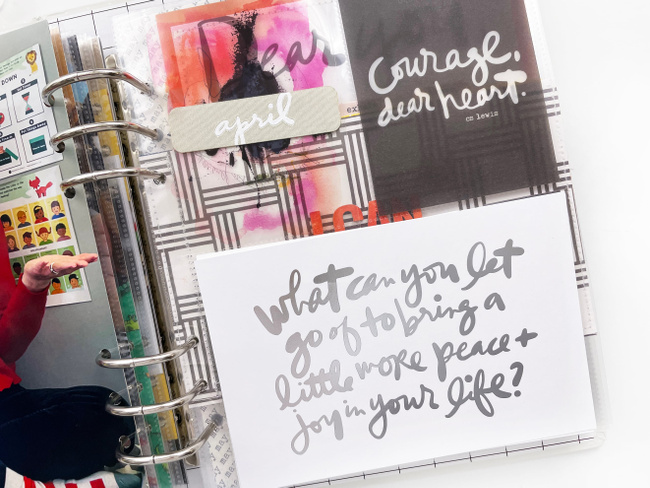 DOWN
Dear
april
Courage,
dear heart.
cs lewis
I CAN
What can you let
go of to bring a
little more peace +
joy in your life?